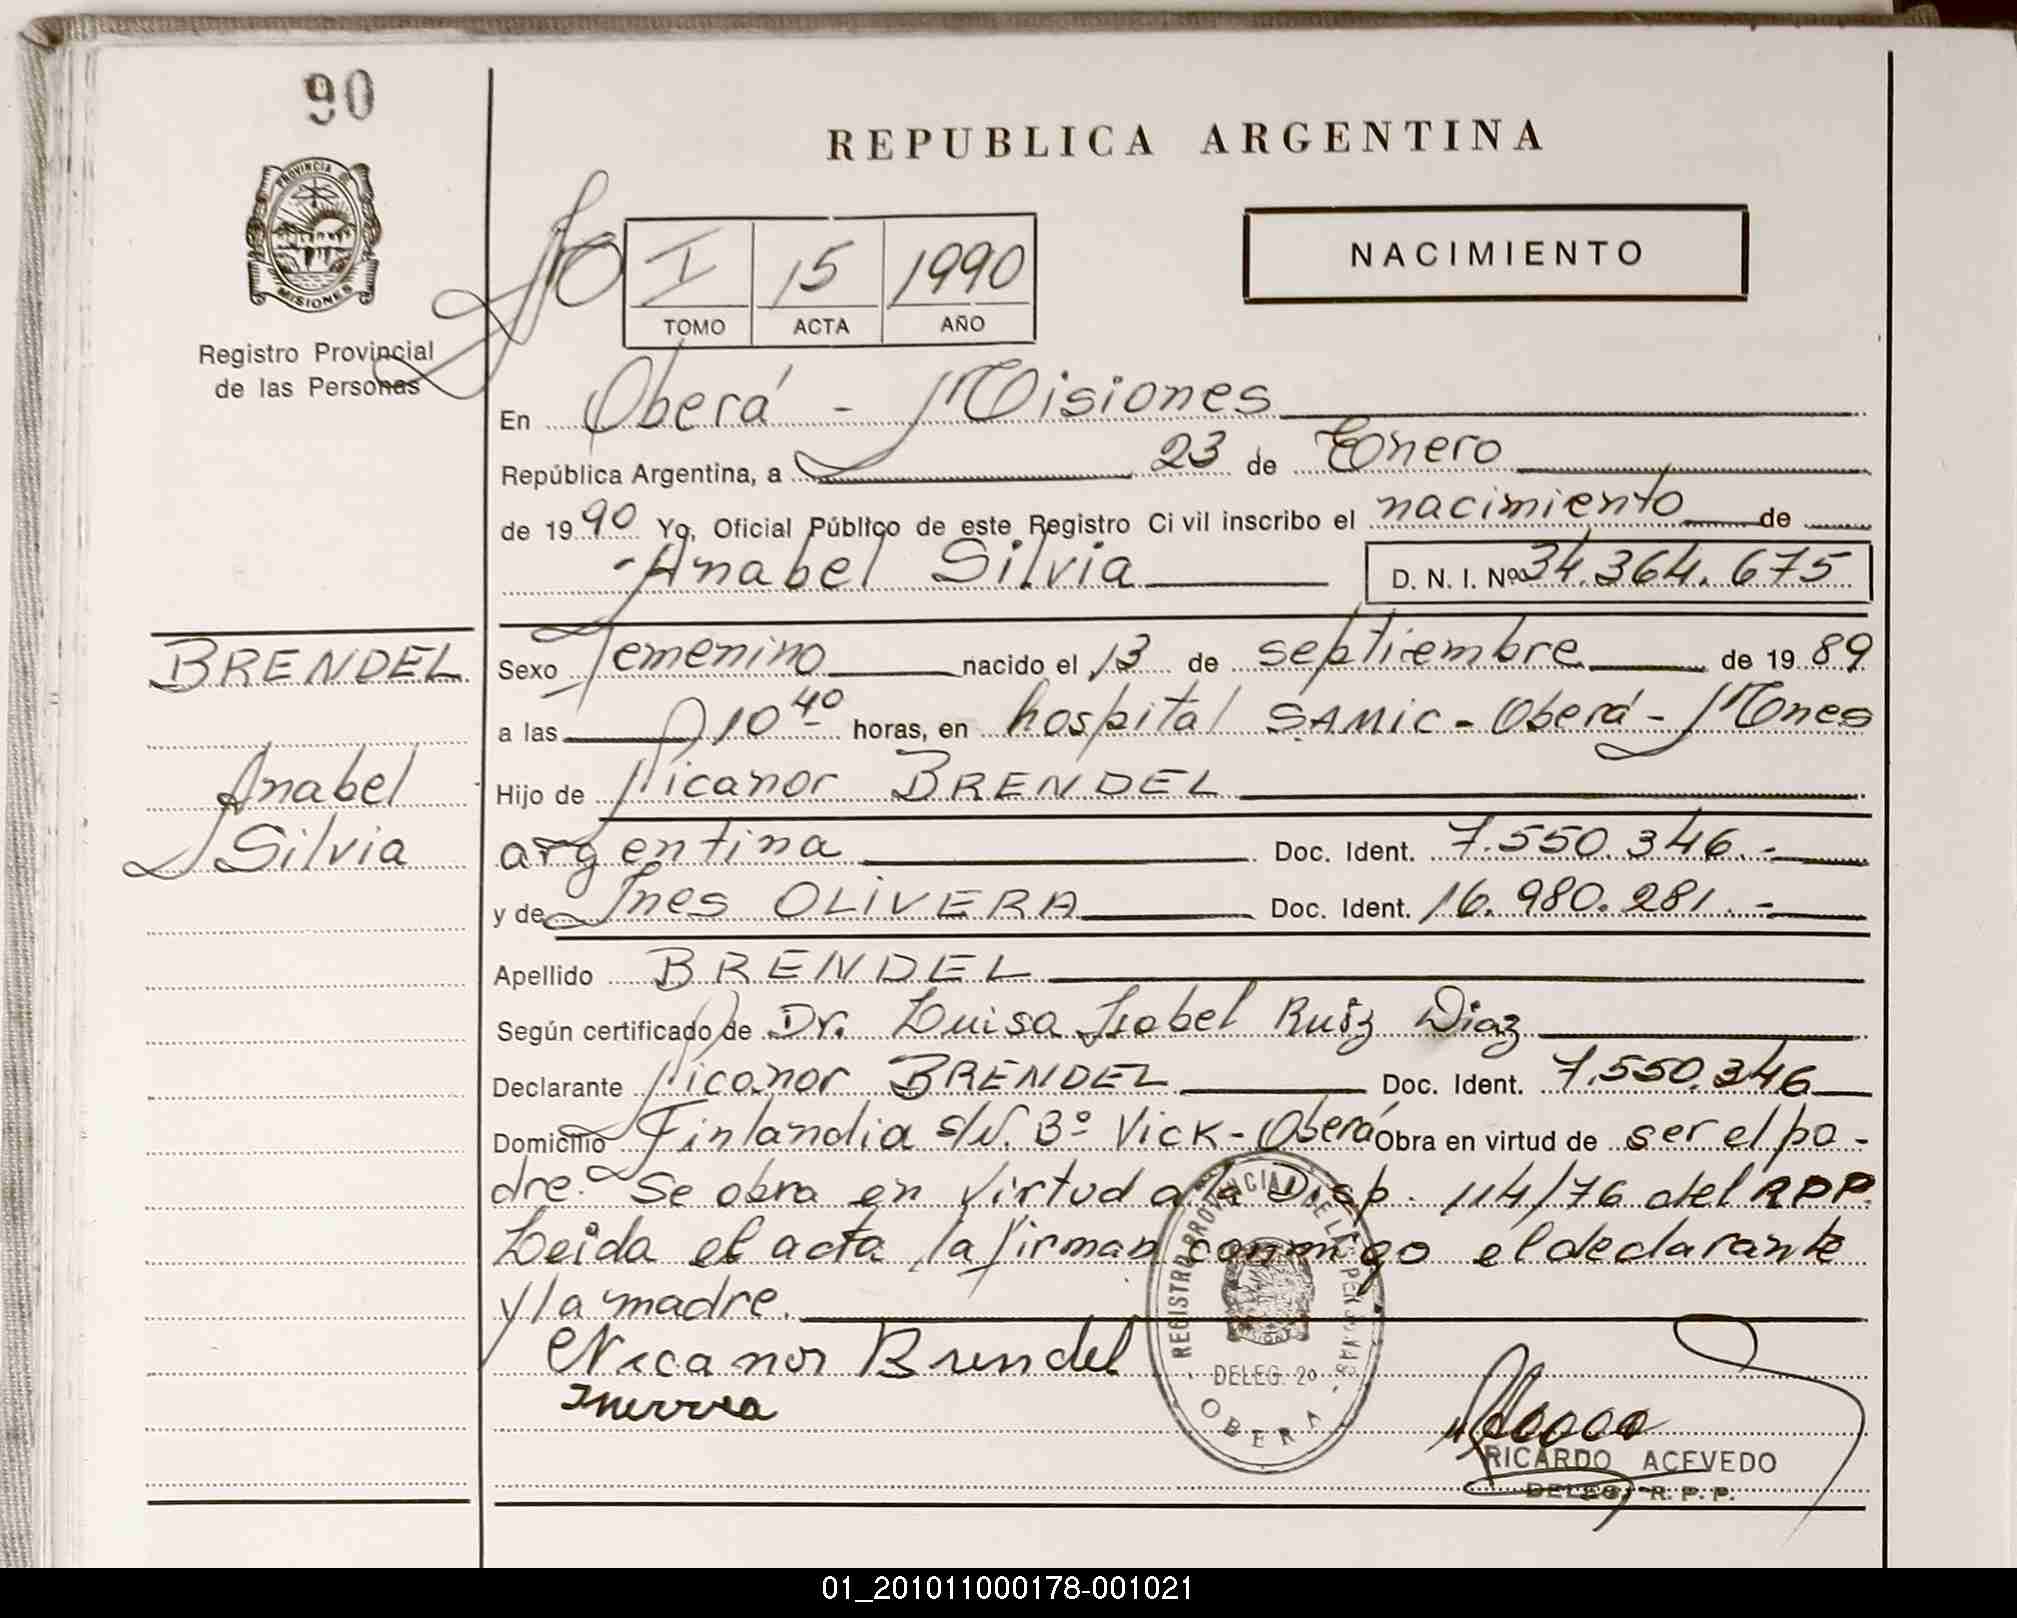 90
REPUBLICA ARGENTINA
PROVINCIA DE
MISIONES
Registro Provincial
de las Personas
Fo
I 15 1990
TOMO ACTA AÑO
NACIMIENTO
En Oberá - Misiones
República Argentina, a 23 de Enero
de 1990 Yo, Oficial Público de este Registro Civil inscribo el nacimiento de
Anabel Silvia D. N. I. Nº 34.364.675
BRENDEL
Anabel
Silvia
Sexo femenino nacido el 13 de septiembre de 1989
a las 10 40 horas, en hospital SAMIC - Oberá - Mnes
Hijo de Nicanor BRENDEL
argentina Doc. Ident. 7.550.346.-
y de Ines OLIVERA Doc. Ident. 16.980.281.-
Apellido BRENDEL
Según certificado de Dr. Luisa Isabel Ruiz Diaz
Declarante Nicanor BRENDEL Doc. Ident. 7.550.346
Domicilio Finlandia s/N. Bº Vick - Oberá Obra en virtud de ser el pa-
dre. Se obra en virtud a la Disp. 114/76 del RPP.
Leida el acta la firman conmigo el declarante
y la madre.
Nicanor Brendel
REGISTRO PROVINCIAL DE LAS PERSONAS
DELEG. 2º
OBERA
RICARDO ACEVEDO
DELEG. R. P. P.
01_201011000178-001021